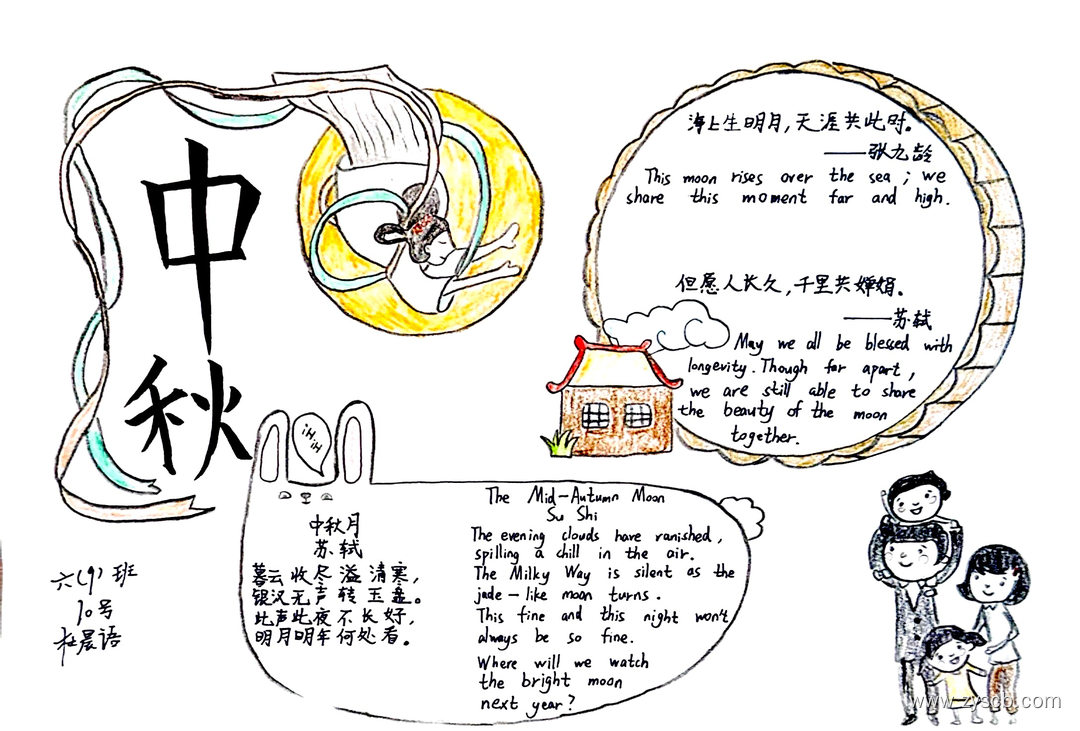 中
秋
海上生明月，天涯共此时。
——张九龄
This moon rises over the sea ; we
share this moment far and high.
但愿人长久，千里共婵娟。
——苏轼
May we all be blessed with
longevity. Though far apart,
we are still able to share
the beauty of the moon
together.
中秋月
苏轼
暮云收尽溢清寒，
银汉无声转玉盘。
此声此夜不长好，
明月明年何处看。
The Mid-Autumn Moon
Su Shi
The evening clouds have ranished,
spilling a chill in the air.
The Milky Way is silent as the
jade-like moon turns.
This fine and this night won't
always be so fine.
Where will we watch
the bright moon
next year?
六(9)班
10号
杜晨语
www.zyscb.com